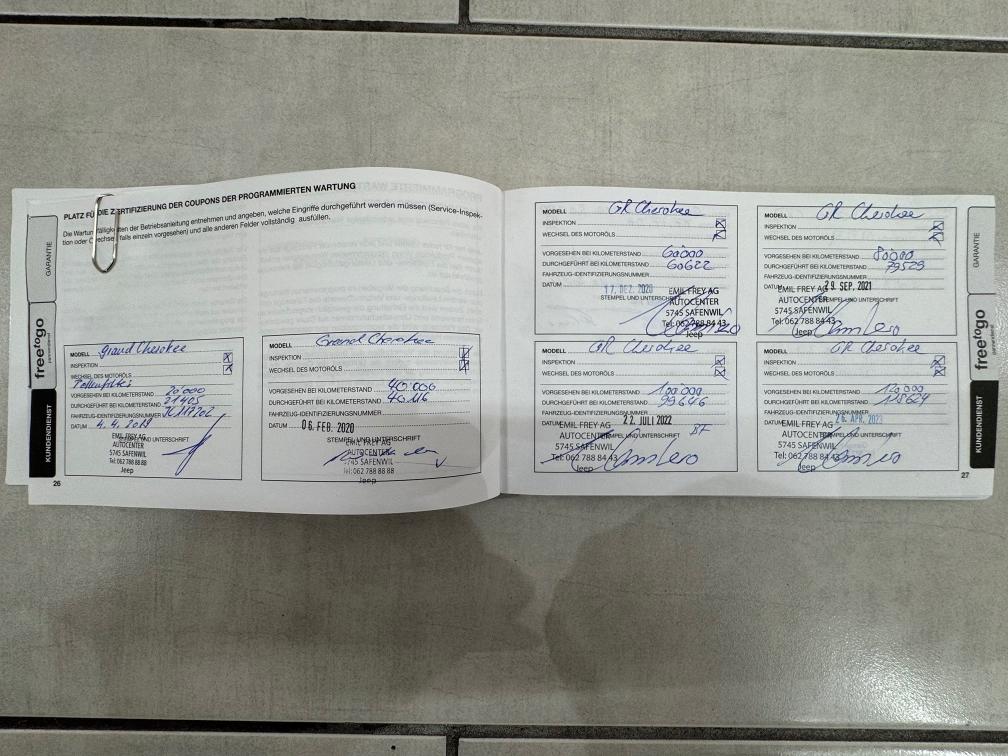 PLATZ FÜR DIE ZERTIFIZIERUNG DER COUPONS DER PROGRAMMIERTEN WARTUNG
Die Wartungsfälligkeiten der Betriebsanleitung entnehmen und angeben, welche Eingriffe durchgeführt werden müssen (Service-Inspek-
tion oder Ölwechsel, falls einzeln vorgesehen) und alle anderen Felder vollständig ausfüllen.
GARANTIE
freetogo
KUNDENDIENST
MODELL Grand Cherokee
INSPEKTION
WECHSEL DES MOTORÖLS
Pollenfilter
VORGESEHEN BEI KILOMETERSTAND 20'000
DURCHGEFÜHRT BEI KILOMETERSTAND 21405
FAHRZEUG-IDENTIFIZIERUNGSNUMMER
DATUM 4.4.2019
STEMPEL UND UNTERSCHRIFT
EMIL FREY AG
AUTOCENTER
5745 SAFENWIL
Tel: 062 788 88 88
Jeep
26
MODELL Grand Cherokee
INSPEKTION
WECHSEL DES MOTORÖLS
VORGESEHEN BEI KILOMETERSTAND 40'000
DURCHGEFÜHRT BEI KILOMETERSTAND 40116
FAHRZEUG-IDENTIFIZIERUNGSNUMMER
DATUM 06. FEB. 2020
STEMPEL UND UNTERSCHRIFT
EMIL FREY AG
AUTOCENTER
5745 SAFENWIL
Tel: 062 788 88 88
Jeep
MODELL GR Cherokee
INSPEKTION
WECHSEL DES MOTORÖLS
VORGESEHEN BEI KILOMETERSTAND 60'000
DURCHGEFÜHRT BEI KILOMETERSTAND 60622
FAHRZEUG-IDENTIFIZIERUNGSNUMMER
DATUM 17. DEZ. 2020
STEMPEL UND UNTERSCHRIFT
EMIL FREY AG
AUTOCENTER
5745 SAFENWIL
Tel: 062 788 84 43
Jeep
MODELL GR Cherokee
INSPEKTION
WECHSEL DES MOTORÖLS
VORGESEHEN BEI KILOMETERSTAND 80'000
DURCHGEFÜHRT BEI KILOMETERSTAND 79529
FAHRZEUG-IDENTIFIZIERUNGSNUMMER
DATUM 29. SEP. 2021
STEMPEL UND UNTERSCHRIFT
EMIL FREY AG
AUTOCENTER
5745 SAFENWIL
Tel: 062 788 84 43
Jeep
MODELL GR Cherokee
INSPEKTION
WECHSEL DES MOTORÖLS
VORGESEHEN BEI KILOMETERSTAND 100'000
DURCHGEFÜHRT BEI KILOMETERSTAND 99646
FAHRZEUG-IDENTIFIZIERUNGSNUMMER
DATUM 22. JULI 2022
STEMPEL UND UNTERSCHRIFT BF
EMIL FREY AG
AUTOCENTER
5745 SAFENWIL
Tel: 062 788 84 43
Jeep
MODELL GR Cherokee
INSPEKTION
WECHSEL DES MOTORÖLS
VORGESEHEN BEI KILOMETERSTAND 120'000
DURCHGEFÜHRT BEI KILOMETERSTAND 118624
FAHRZEUG-IDENTIFIZIERUNGSNUMMER
DATUM 26. APR. 2023
STEMPEL UND UNTERSCHRIFT
EMIL FREY AG
AUTOCENTER
5745 SAFENWIL
Tel: 062 788 84 43
Jeep
GARANTIE
freetogo
KUNDENDIENST
27